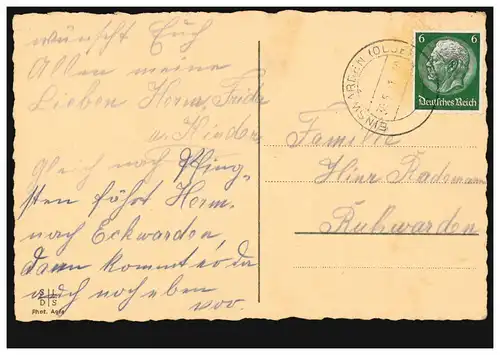 wünscht Euch
Allen meine
Lieben Herm, Frida
u. Kinder.
Gleich nach Pfing-
sten fährt Herm.
nach Eckwarden
dann kommt er da
auch noch eben
vor.
S ‖
D S
Phot. Agfa
EINSWARDEN (OLDB)
6 6
Deutsches Reich
Familie
Hinr Rademann
Ruhwarden